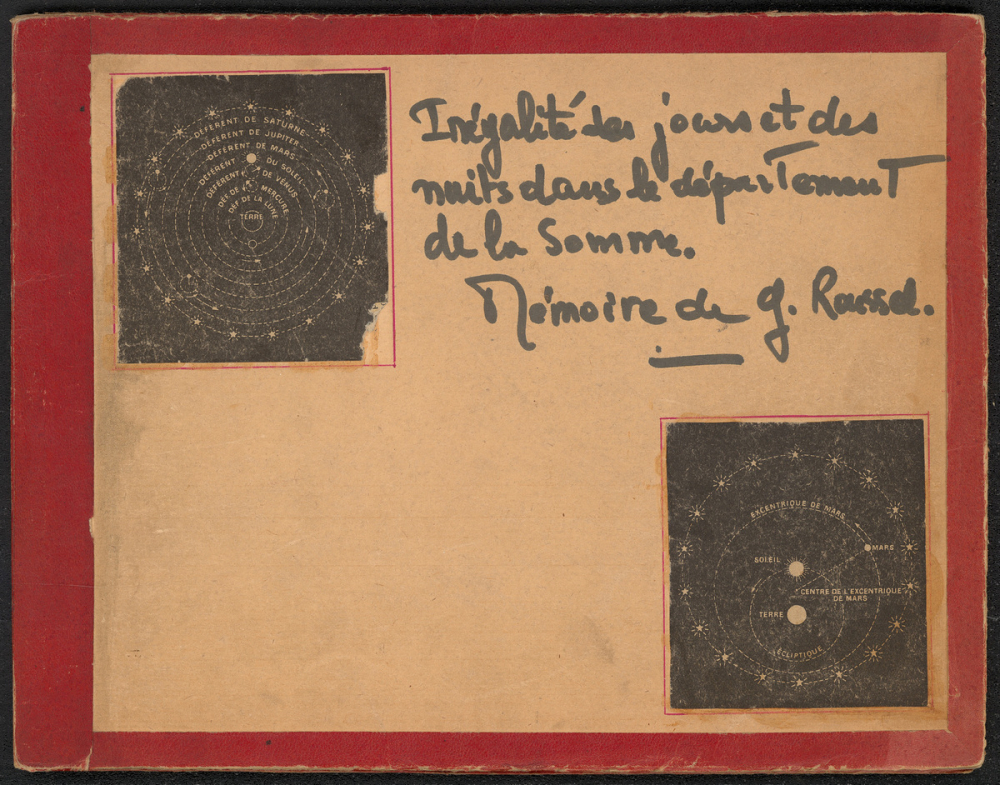 Inégalité des jours et des
nuits dans le département
de la Somme.
Mémoire de G. Roussel.
DÉFÉRENT DE SATURNE
DÉFÉRENT DE JUPITER
DÉFÉRENT DE MARS
DÉFÉRENT DU SOLEIL
DÉFÉRENT DE VÉNUS
DÉF DE MERCURE
DÉF DE LA LUNE
TERRE
EXCENTRIQUE DE MARS
MARS
SOLEIL
CENTRE DE L'EXCENTRIQUE
DE MARS
TERRE
ÉCLIPTIQUE